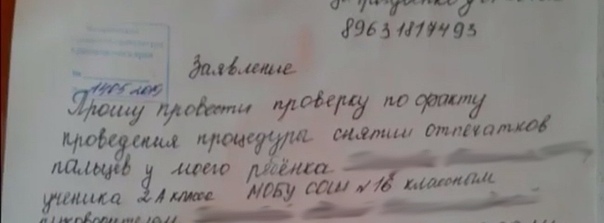 89631817493
Заявление
№
14.05.2019
Прошу провести проверку по факту
проведения процедуры снятии отпечатков
пальцев у моего ребёнка
ученика 2 А класса МОБУ СОШ №16 классным
руководителем